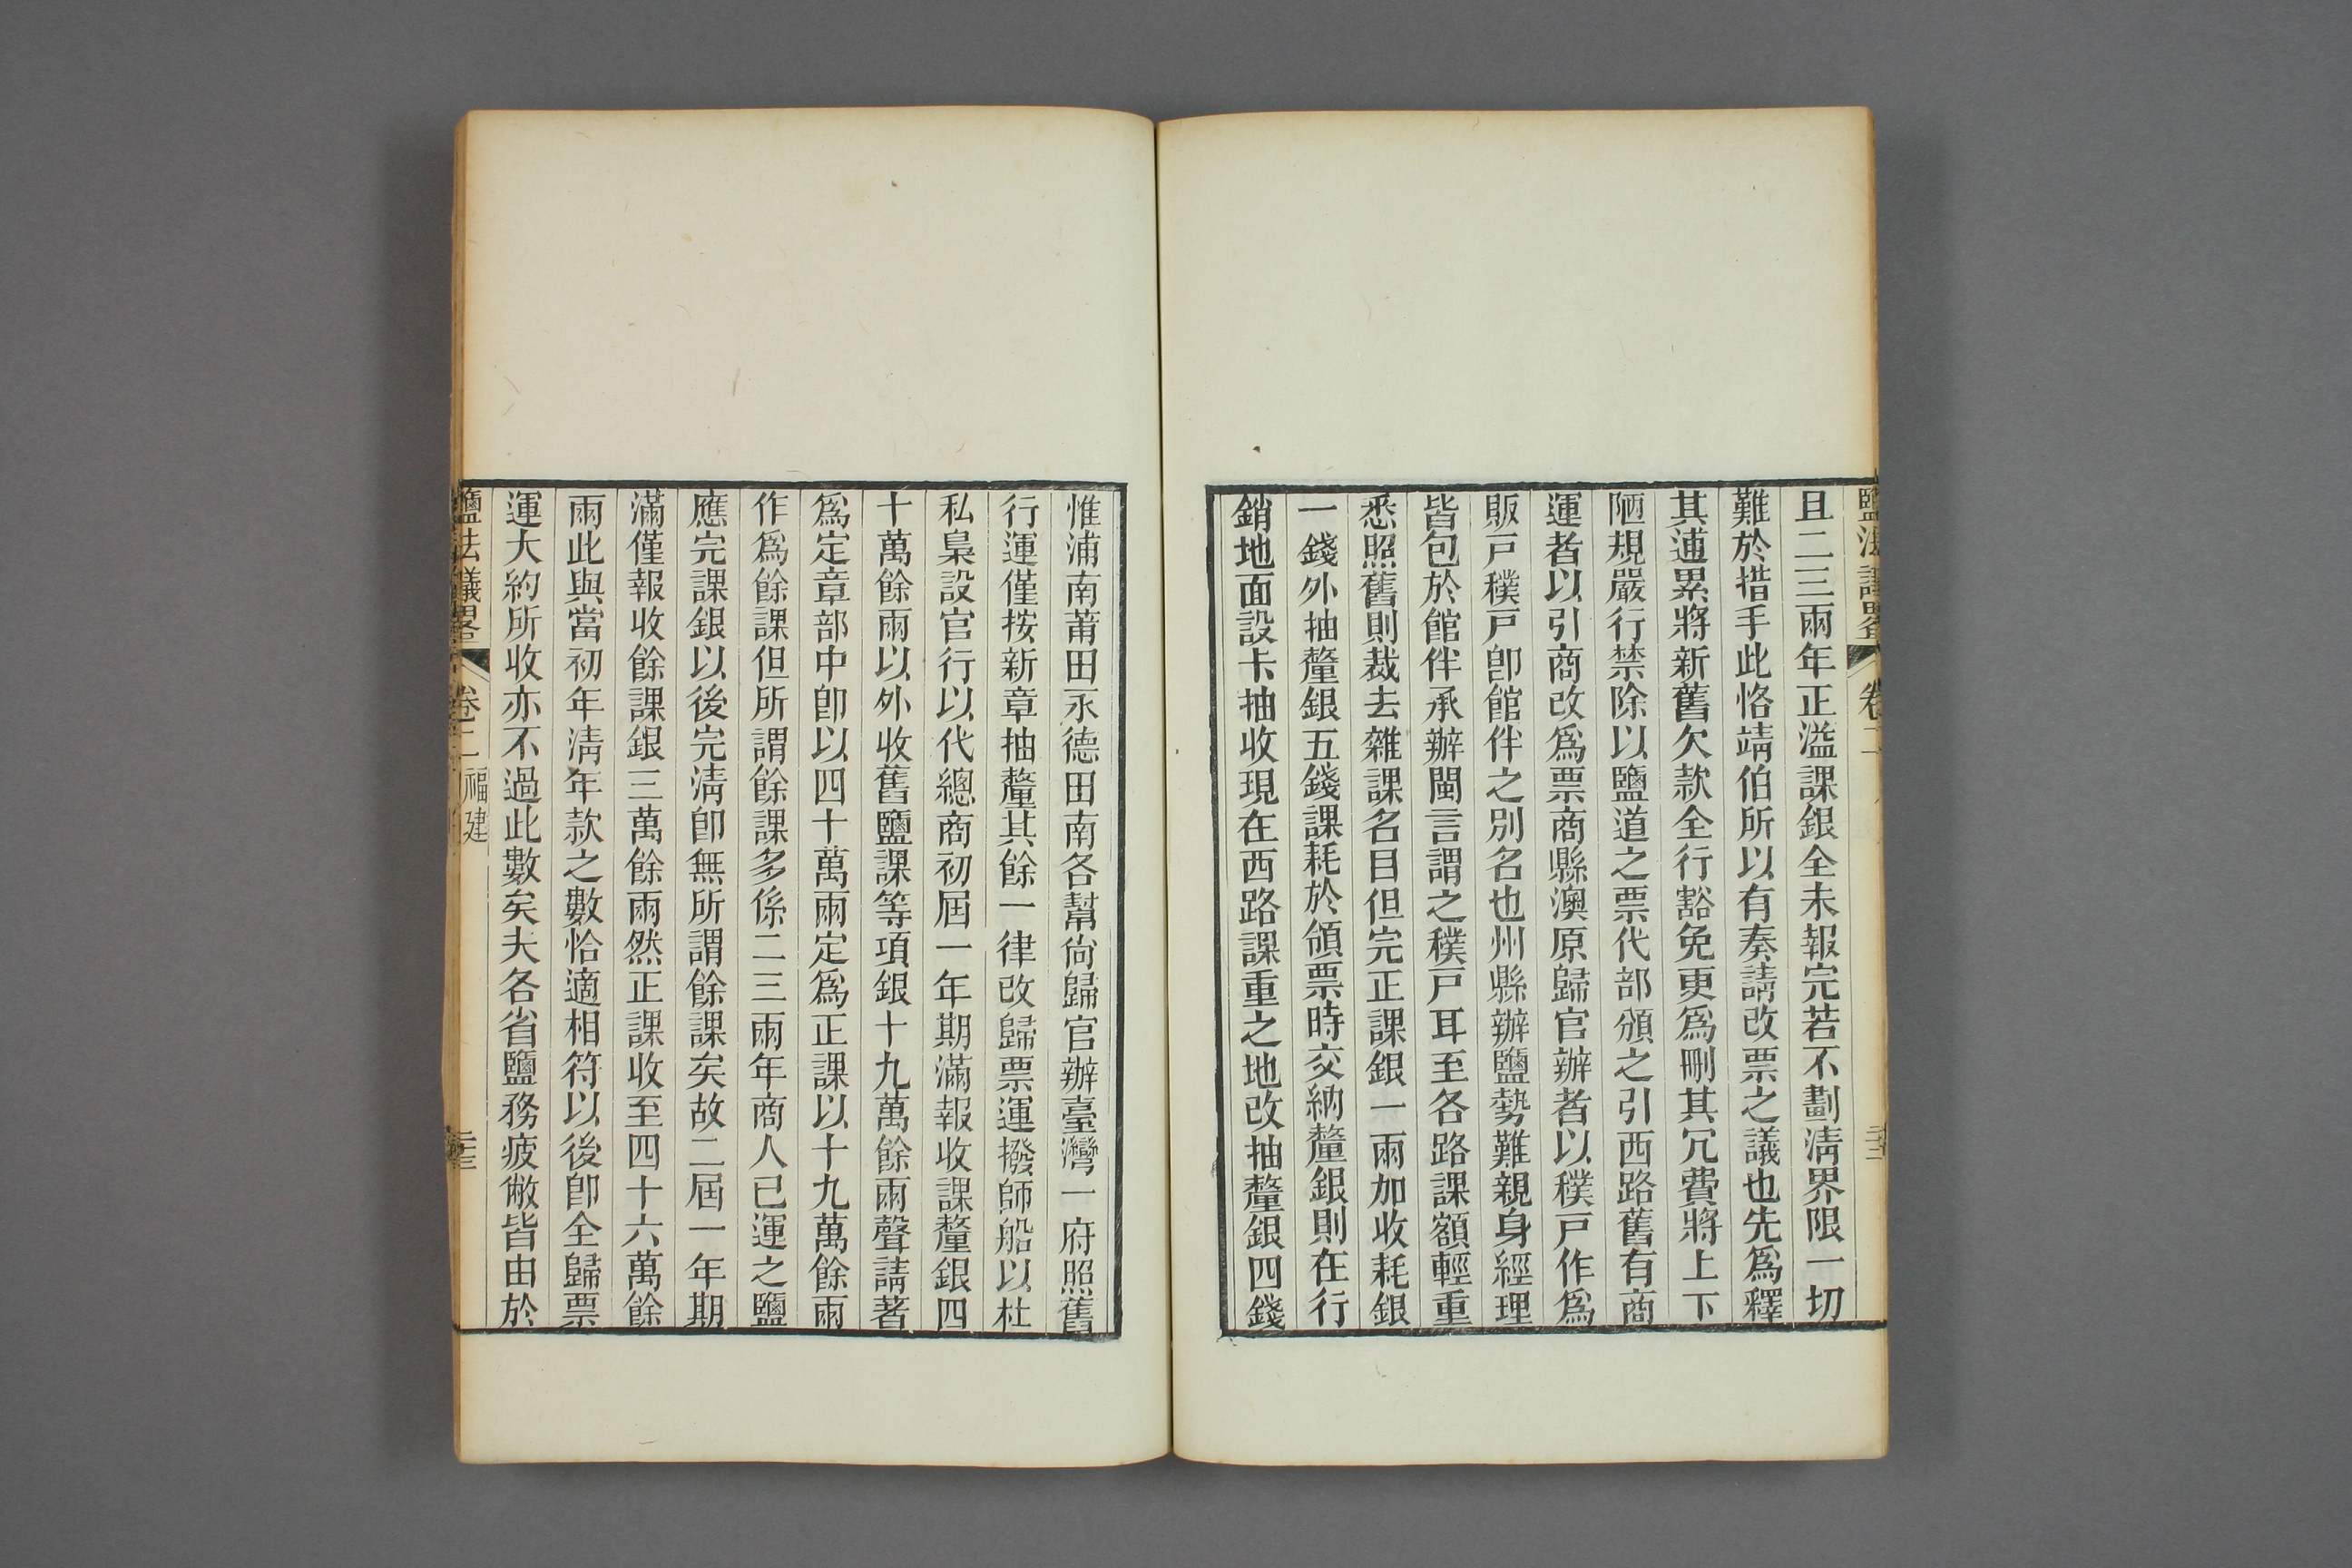 鹽法議畧 卷二
且二三兩年正溢課銀全未報完若不劃清界限一切
難於措手此恪靖伯所以有奏請改票之議也先爲釋
其逋累將新舊欠款全行豁免更爲刪其冗費將上下
陋規嚴行禁除以鹽道之票代部頒之引西路舊有商
運者以引商改爲票商縣澳原歸官辦者以穙戸作爲
販戸穙戸卽館伴之別名也州縣辦鹽勢難親身經理
皆包於館伴承辦閩言謂之穙戸耳至各路課額輕重
悉照舊則裁去雜課名目但完正課銀一兩加收耗銀
一錢外抽釐銀五錢課耗於領票時交納釐銀則在行
銷地面設卡抽收現在西路課重之地改抽釐銀四錢
惟浦南莆田永德田南各幫尙歸官辦臺灣一府照舊
行運僅按新章抽釐其餘一律改歸票運撥師船以杜
私梟設官行以代總商初屆一年期滿報收課釐銀四
十萬餘兩以外收舊鹽課等項銀十九萬餘兩聲請著
爲定章部中卽以四十萬兩定爲正課以十九萬餘兩
作爲餘課但所謂餘課多係二三兩年商人已運之鹽
應完課銀以後完清卽無所謂餘課矣故二屆一年期
滿僅報收餘課銀三萬餘兩然正課收至四十六萬餘
兩此與當初年清年款之數恰適相符以後卽全歸票
運大約所收亦不過此數矣夫各省鹽務疲敝皆由於
鹽法議畧 卷二 福建 二十三